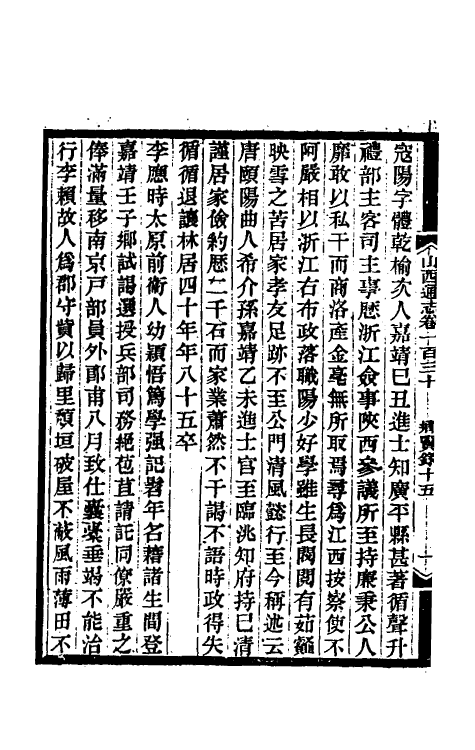 山西通志卷一百三十 鄉賢錄十五 一
寇陽字體乾榆次人嘉靖己丑進士知廣平縣甚著循聲升
禮部主客司主事歷浙江僉事陝西參議所至持廉秉公人
靡敢以私干而商洛產金毫無所取焉尋爲江西按察使不
阿嚴相以浙江右布政落職陽少好學雖生長閥閱有茹虀
映雪之苦居家孝友足跡不至公門清風懿行至今稱述云
唐頤陽曲人希介孫嘉靖乙未進士官至臨洮知府持己清
謹居家儉約歷二千石而家業蕭然不干謁不語時政得失
循循退讓林居四十年年八十五卒
李應時太原前衛人幼穎悟篤學强記髫年名藉諸生間登
嘉靖壬子鄉試謁選授兵部司務絕苞苴請託同僚嚴重之
俸滿量移南京戶部員外郎甫八月致仕囊槖垂竭不能治
行李賴故人爲郡守貲以歸里頽垣破屋不蔽風雨薄田不